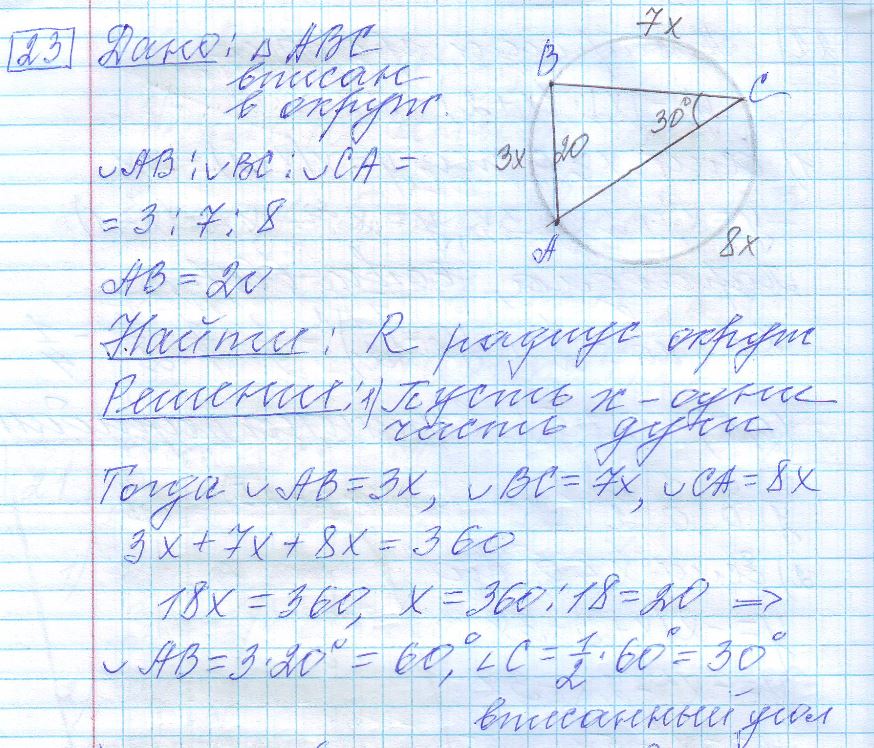 23 Дано: △ ABC
вписан
в окруж.
◡AB : ◡BC : ◡CA =
= 3 : 7 : 8
AB = 20
Найти: R радиус окруж
Решение: 1) Пусть x - одна
часть дуги
Тогда ◡AB = 3x, ◡BC = 7x, ◡CA = 8x
3x + 7x + 8x = 360
18x = 360, x = 360 : 18 = 20 =>
◡AB = 3·20° = 60°, ∠C = 1/2 · 60° = 30°
вписанный угол
7x
B
C
30°
3x
20
A
8x